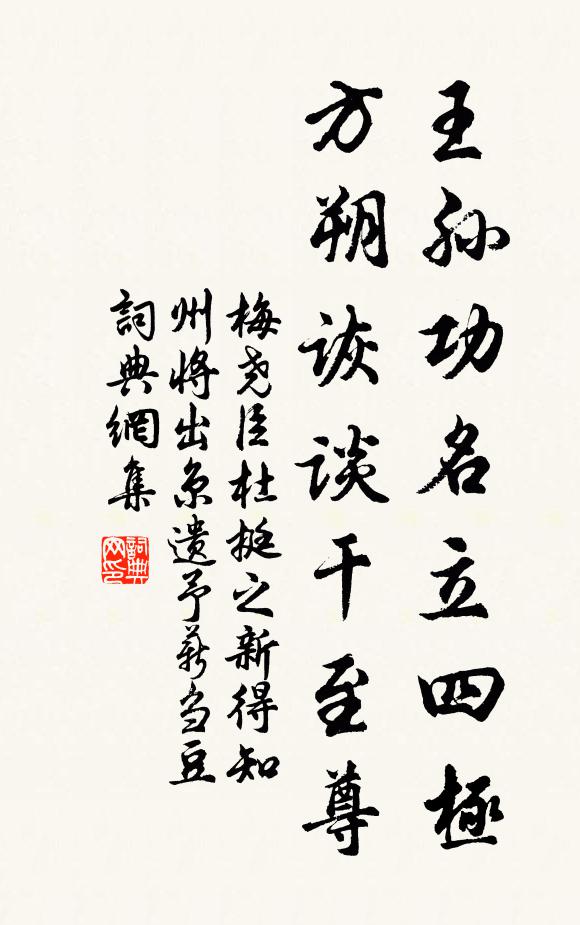 王孫功名立四極
方朔詼談干至尊
梅尧臣杜挺之新得知
州将出京遗予薪刍豆
詞典網集
詞典
网印